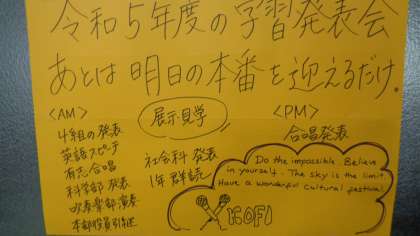 令和5年度の学習発表会
あとは明日の本番を迎えるだけ。
<AM>
4組の発表
英語スピーチ
有志合唱
科学部発表
吹奏楽部演奏
本部役員引継
展示見学
社会科発表
1年群読
<PM>
合唱発表
Do the impossible. Believe
in yourself. The sky is the limit.
Have a wonderful cultural festival.